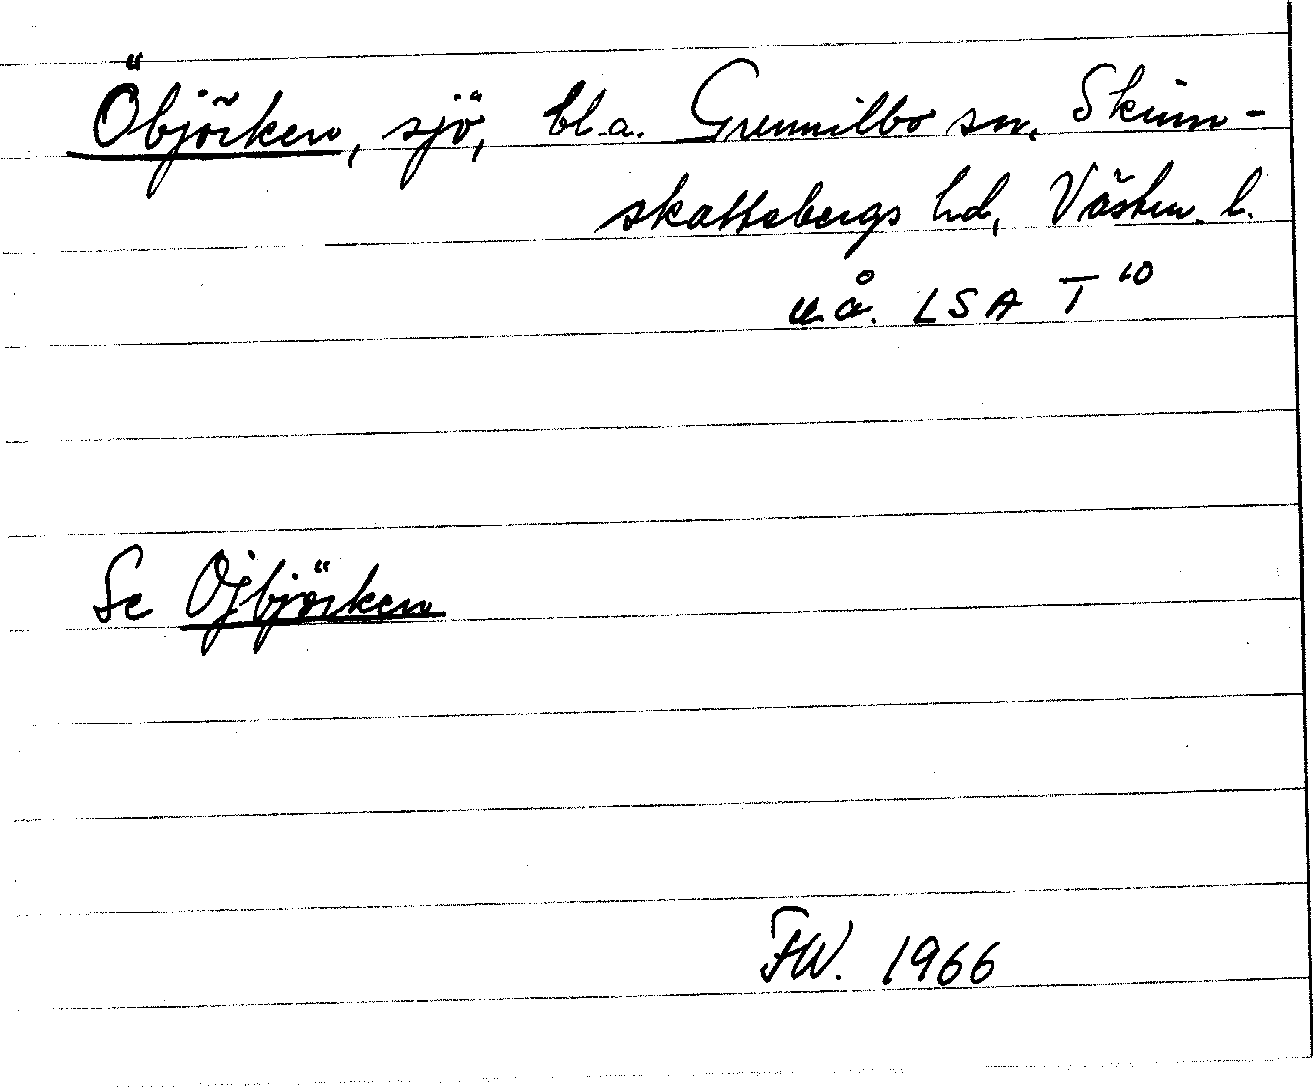 Öbjörken, sjö, bl.a. Grennilbo sn, Skinn-
skattebergs hd, Västm. l.
u.å. LSA T 10
Se Ojbjörken
FW. 1966